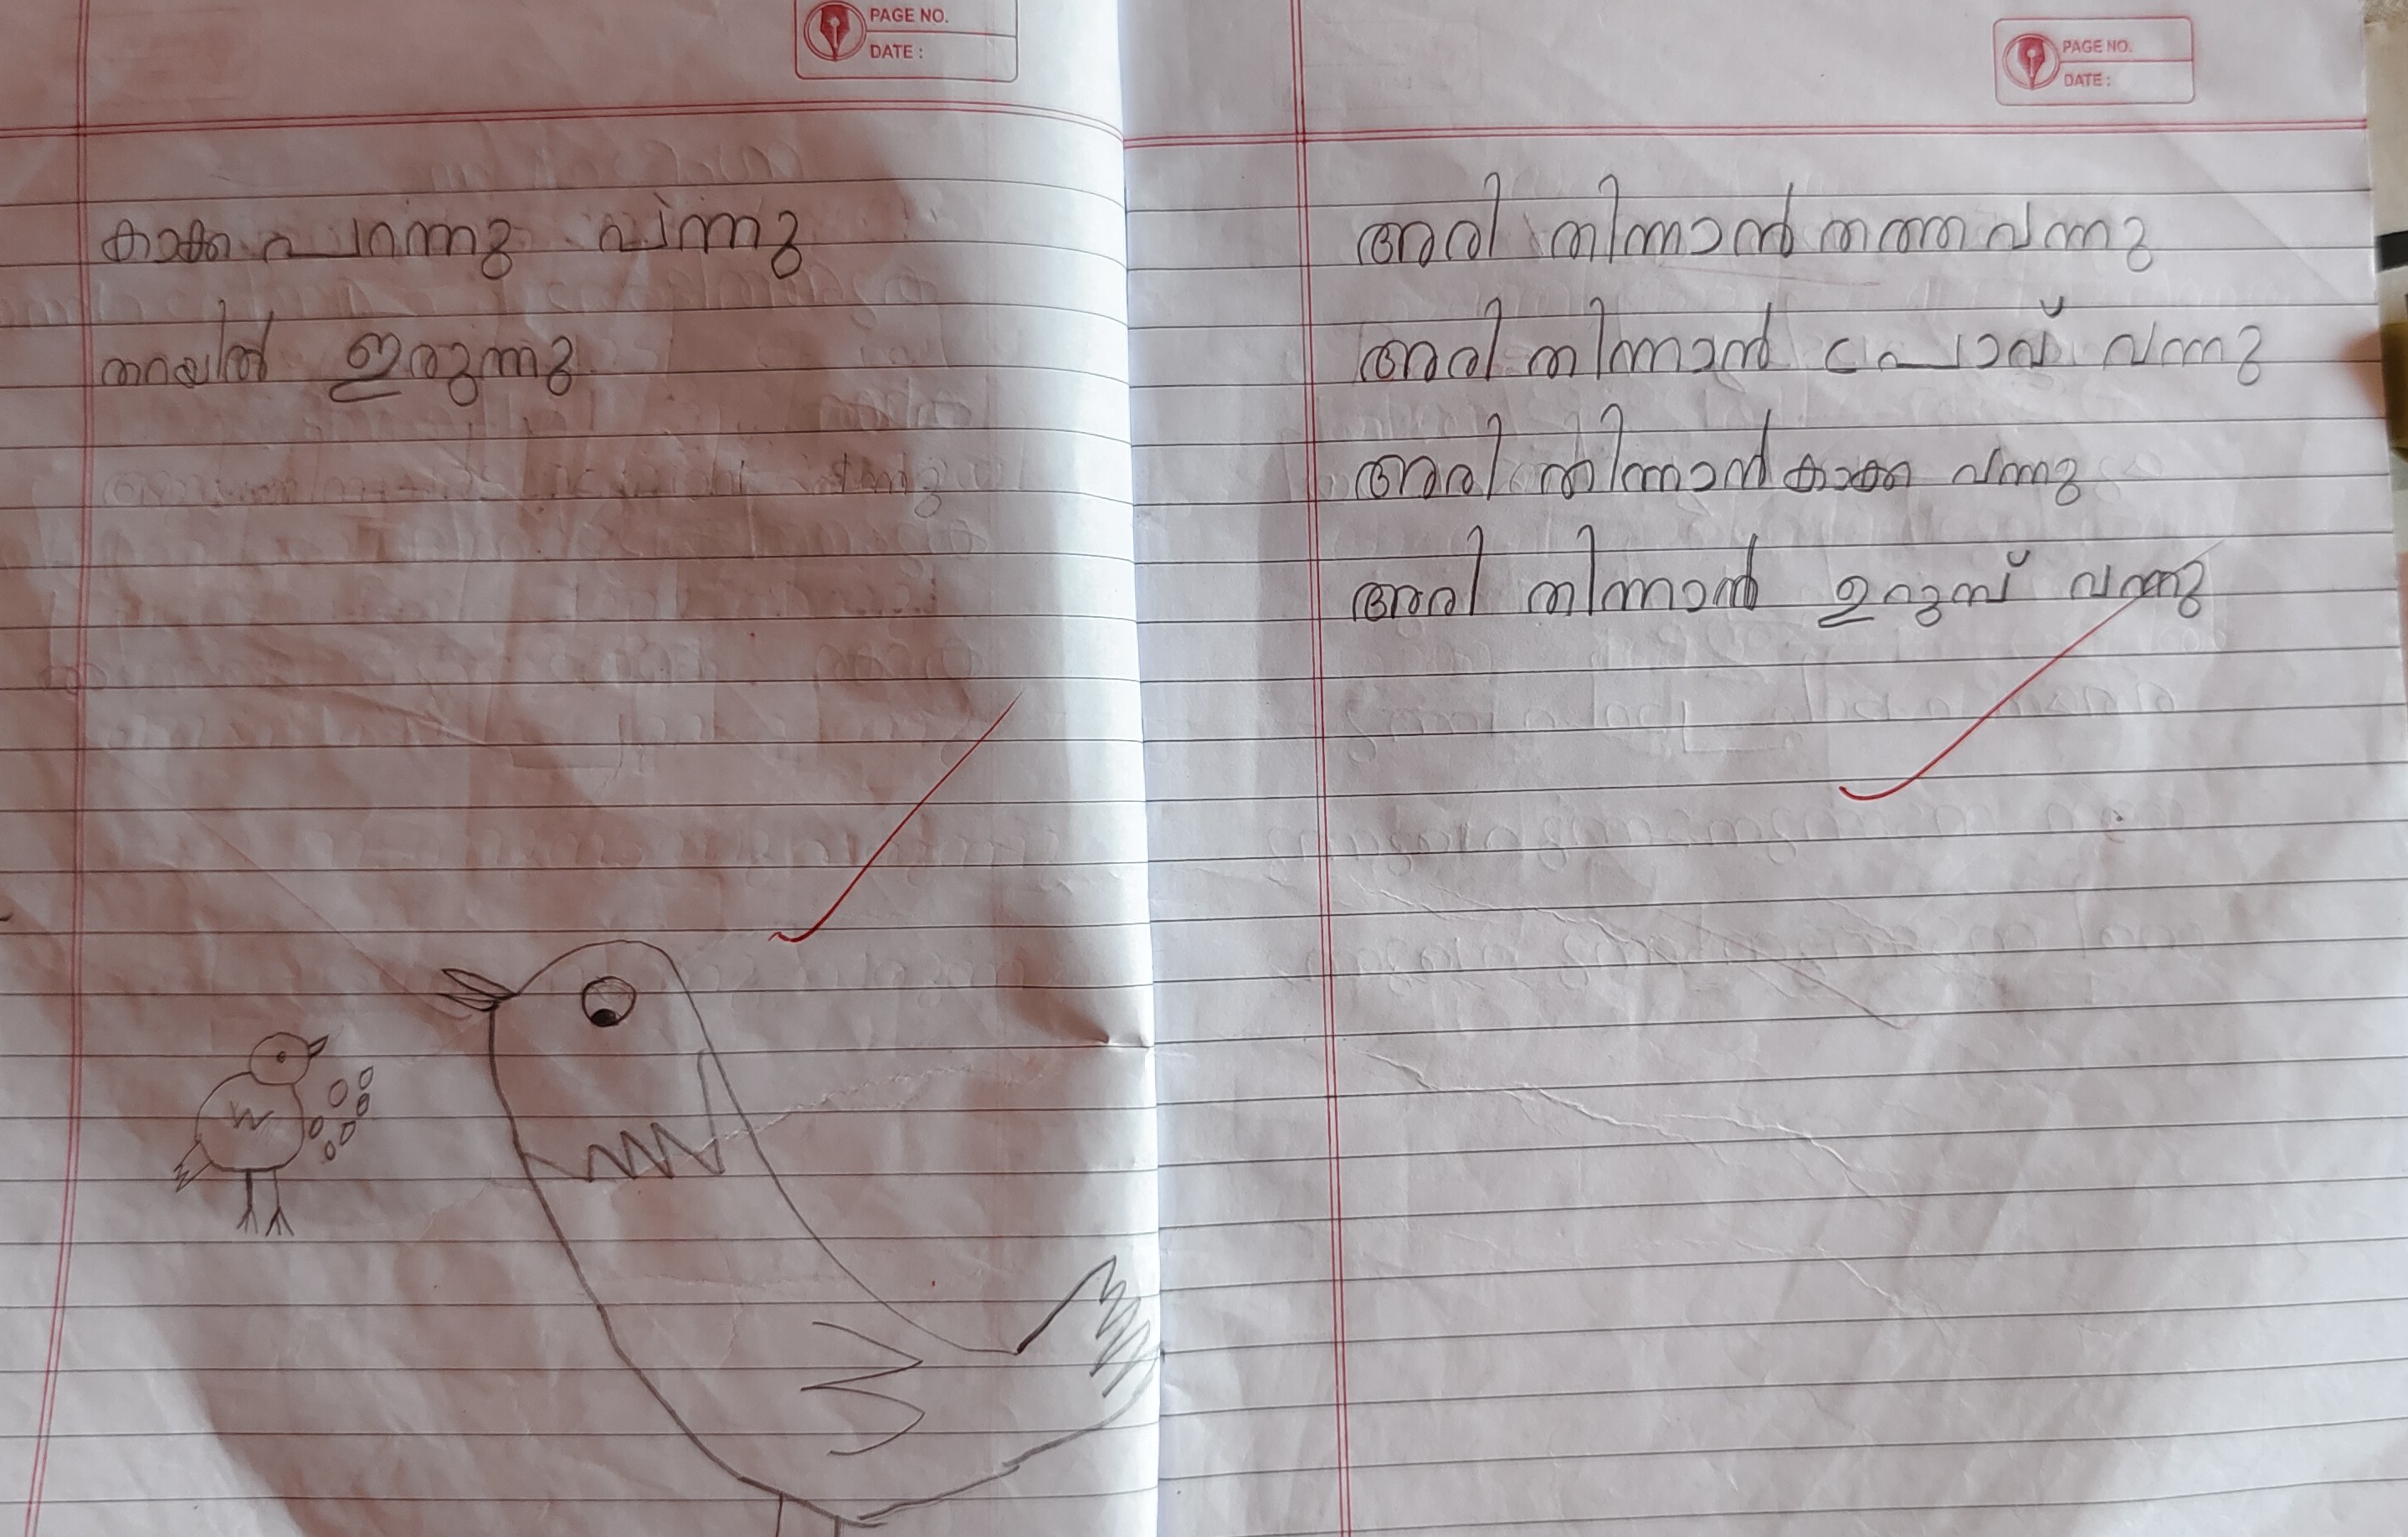 PAGE NO.
DATE :
കാക്ക പറന്നു വന്നു
തറയിൽ ഇരുന്നു
PAGE NO.
DATE :
അരി തിന്നാൻ തത്ത വന്നു
അരി തിന്നാൻ പ്രാവ് വന്നു
അരി തിന്നാൻ കാക്ക വന്നു
അരി തിന്നാൻ ഉറുമ്പ് വന്നു